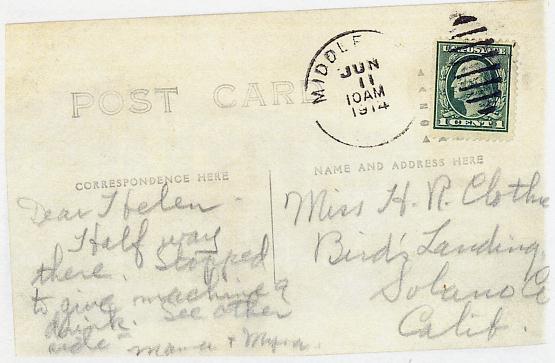 MIDDLE
JUN
11
10AM
1914
U.S. POSTAGE
1 CENT 1
POST CAR
CORRESPONDENCE HERE
NAME AND ADDRESS HERE
Dear Helen -
Half way
there. Stopped
to give machine a
drink. See other
side -
Mama + Myra.
Miss H. R. Clothe
Bird's Landing,
Solano Co
Calif.